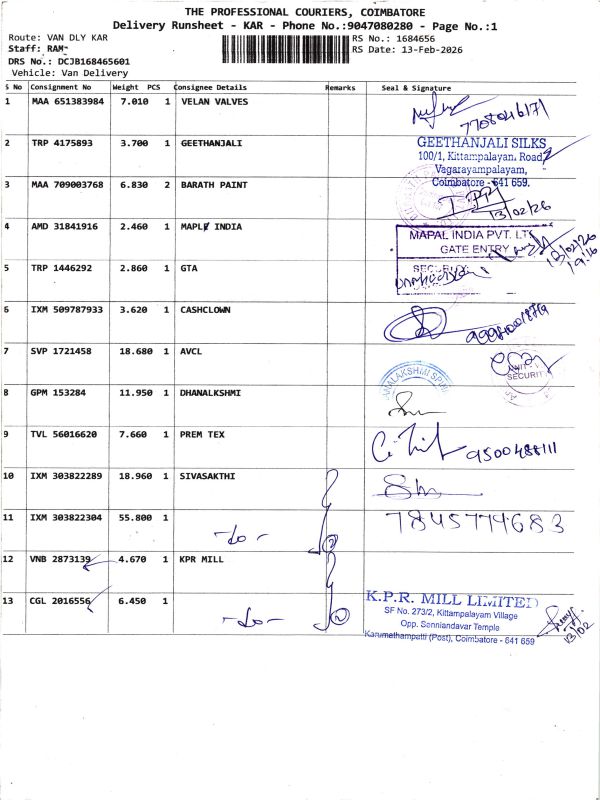 THE PROFESSIONAL COURIERS, COIMBATORE
Delivery Runsheet - KAR - Phone No.:9047080280 - Page No.:1
Route: VAN DLY KAR
RS No.: 1684656
Staff: RAM
RS Date: 13-Feb-2026
DRS No.: DCJB168465601
Vehicle: Van Delivery
S No Consignment No Weight PCS Consignee Details Remarks Seal & Signature
1 MAA 651383984 7.010 1 VELAN VALVES
7708046171
2 TRP 4175893 3.700 1 GEETHANJALI
GEETHANJALI SILKS
100/1, Kittampalayan, Road,
Vagarayampalayam,
Coimbatore - 641 659.
3 MAA 709003768 6.830 2 BARATH PAINT
13/02/26
4 AMD 31841916 2.460 1 MAPLE INDIA
MAPAL INDIA PVT. LT
GATE ENTRY
13/02/26
5 TRP 1446292 2.860 1 GTA
6 IXM 509787933 3.620 1 CASHCLOWN
7 SVP 1721458 18.680 1 AVCL
SECURIT
8 GPM 153284 11.950 1 DHANALKSHMI
9 TVL 56016620 7.660 1 PREM TEX
9500488111
10 IXM 303822289 18.960 1 SIVASAKTHI
11 IXM 303822304 55.800 1
-do-
7845774683
12 VNB 2873139 4.670 1 KPR MILL
13 CGL 2016556 6.450 1
-do-
K.P.R. MILL LIMITED
SF No. 273/2, Kittampalayam Village
Opp. Senniandavar Temple
Karumethampatti (Post), Coimbatore - 641 659
13/02